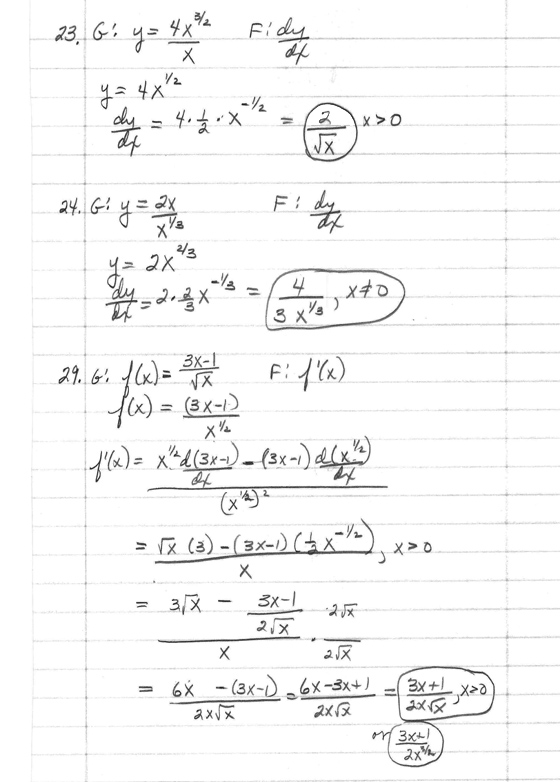 23. G: y = 4x^(3/2)/x    F: dy/dx
y = 4x^(1/2)
dy/dx = 4 · 1/2 · x^(-1/2) = 2/√x  x>0
24. G: y = 2x/x^(1/3)    F: dy/dx
y = 2x^(2/3)
dy/dx = 2 · 2/3 x^(-1/3) = 4/(3x^(1/3)), x≠0
29. G: f(x) = (3x-1)/√x    F: f'(x)
f(x) = (3x-1)/x^(1/2)
f'(x) = (x^(1/2) d(3x-1)/dx - (3x-1) d(x^(1/2))/dx)/(x^(1/2))^2
= (√x (3) - (3x-1)(1/2 x^(-1/2)))/x, x>0
= (3√x - (3x-1)/(2√x))/x · 2√x/2√x
= (6x - (3x-1))/(2x√x) = (6x-3x+1)/(2x√x) = (3x+1)/(2x√x), x>0
or (3x+1)/(2x^(3/2))